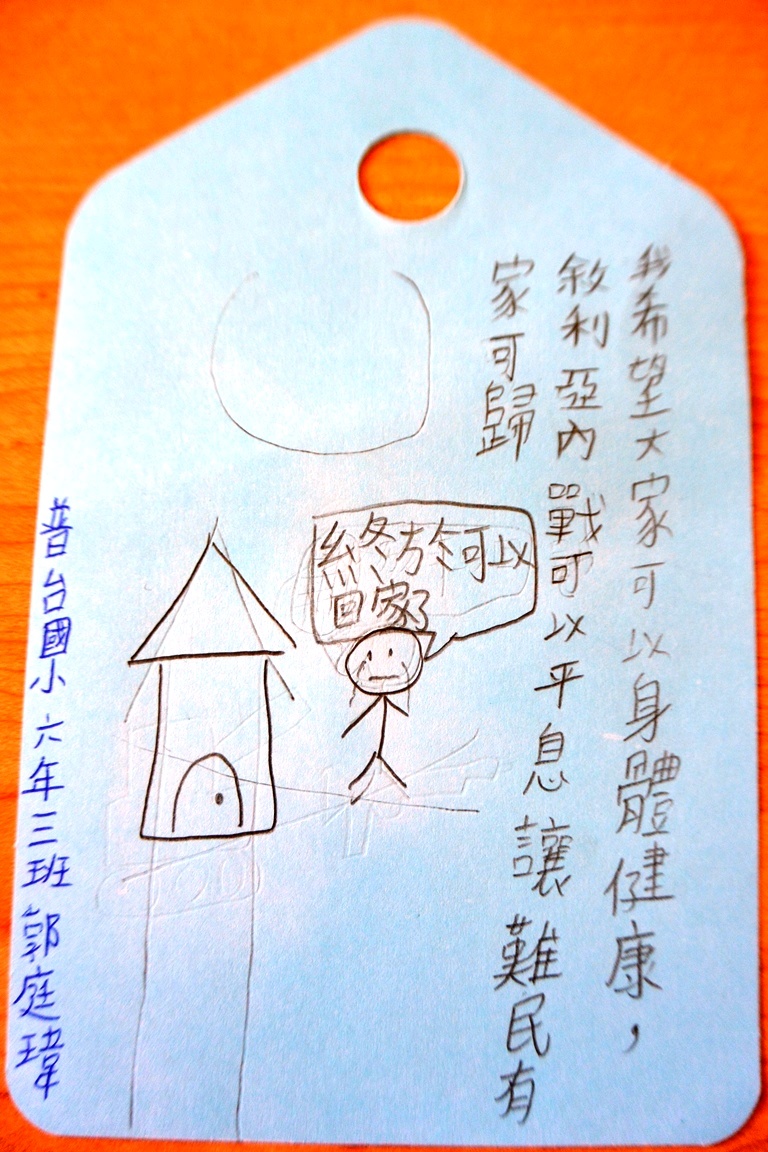 我希望大家可以身體健康，
敘利亞內戰可以平息讓難民有
家可歸
終於可以
回家了
普台國小六年三班郭庭瑋